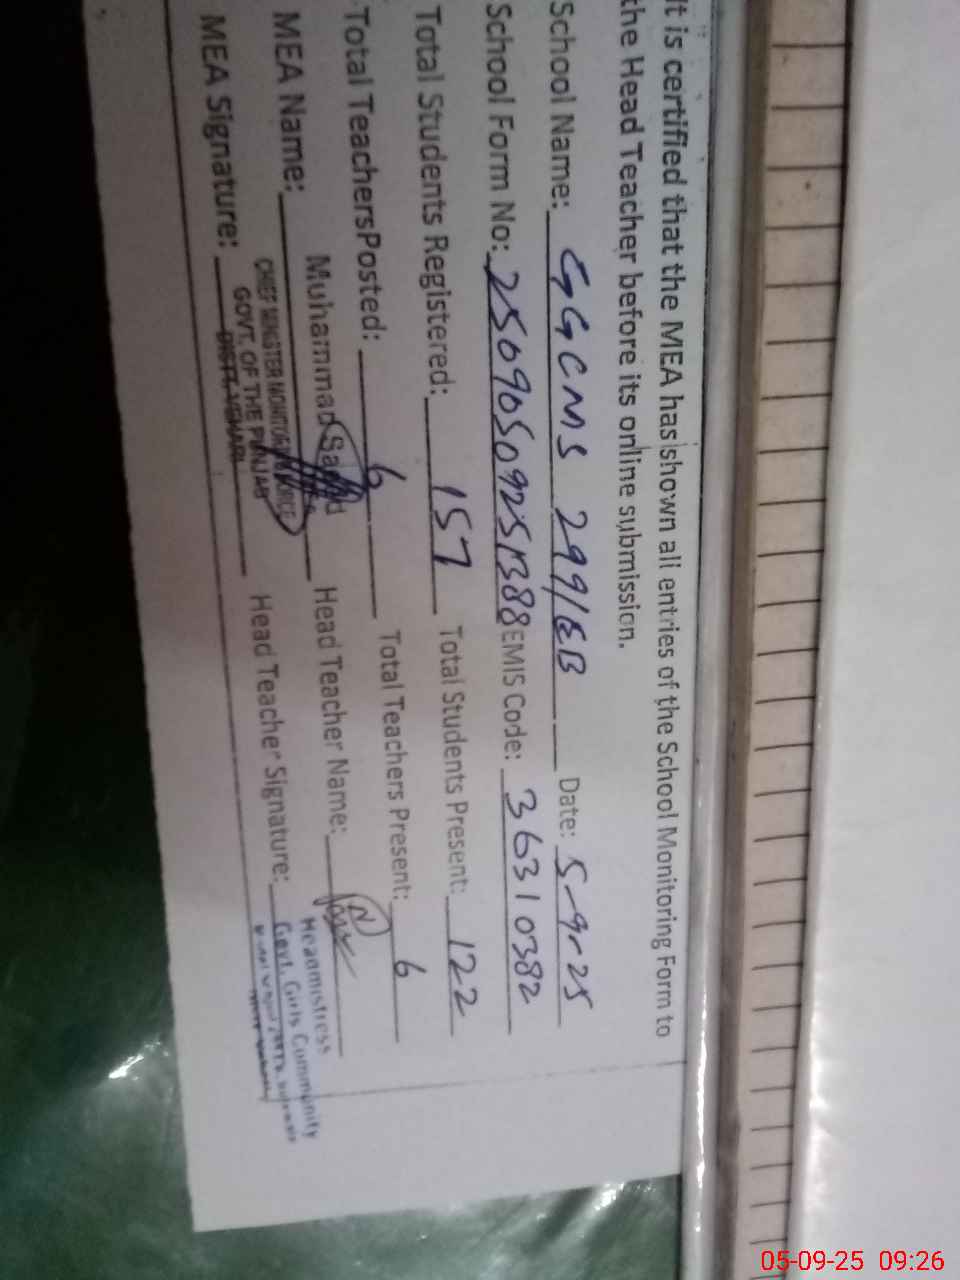 It is certified that the MEA has shown all entries of the School Monitoring Form to
the Head Teacher before its online submission.
School Name: GGCMS 299/EB Date: 5-9-25
School Form No: 25090509251388 EMIS Code: 36310382
Total Students Registered: 157 Total Students Present: 122
Total TeachersPosted: 6 Total Teachers Present: 6
MEA Name: Muhammad Head Teacher Name:
MEA Signature: Head Teacher Signature:
CHIEF MINISTER MONITORING FORCE
GOVT. OF THE PUNJAB
DISTT. VEHARI
Headmistress
Govt. Girls Community
05-09-25 09:26